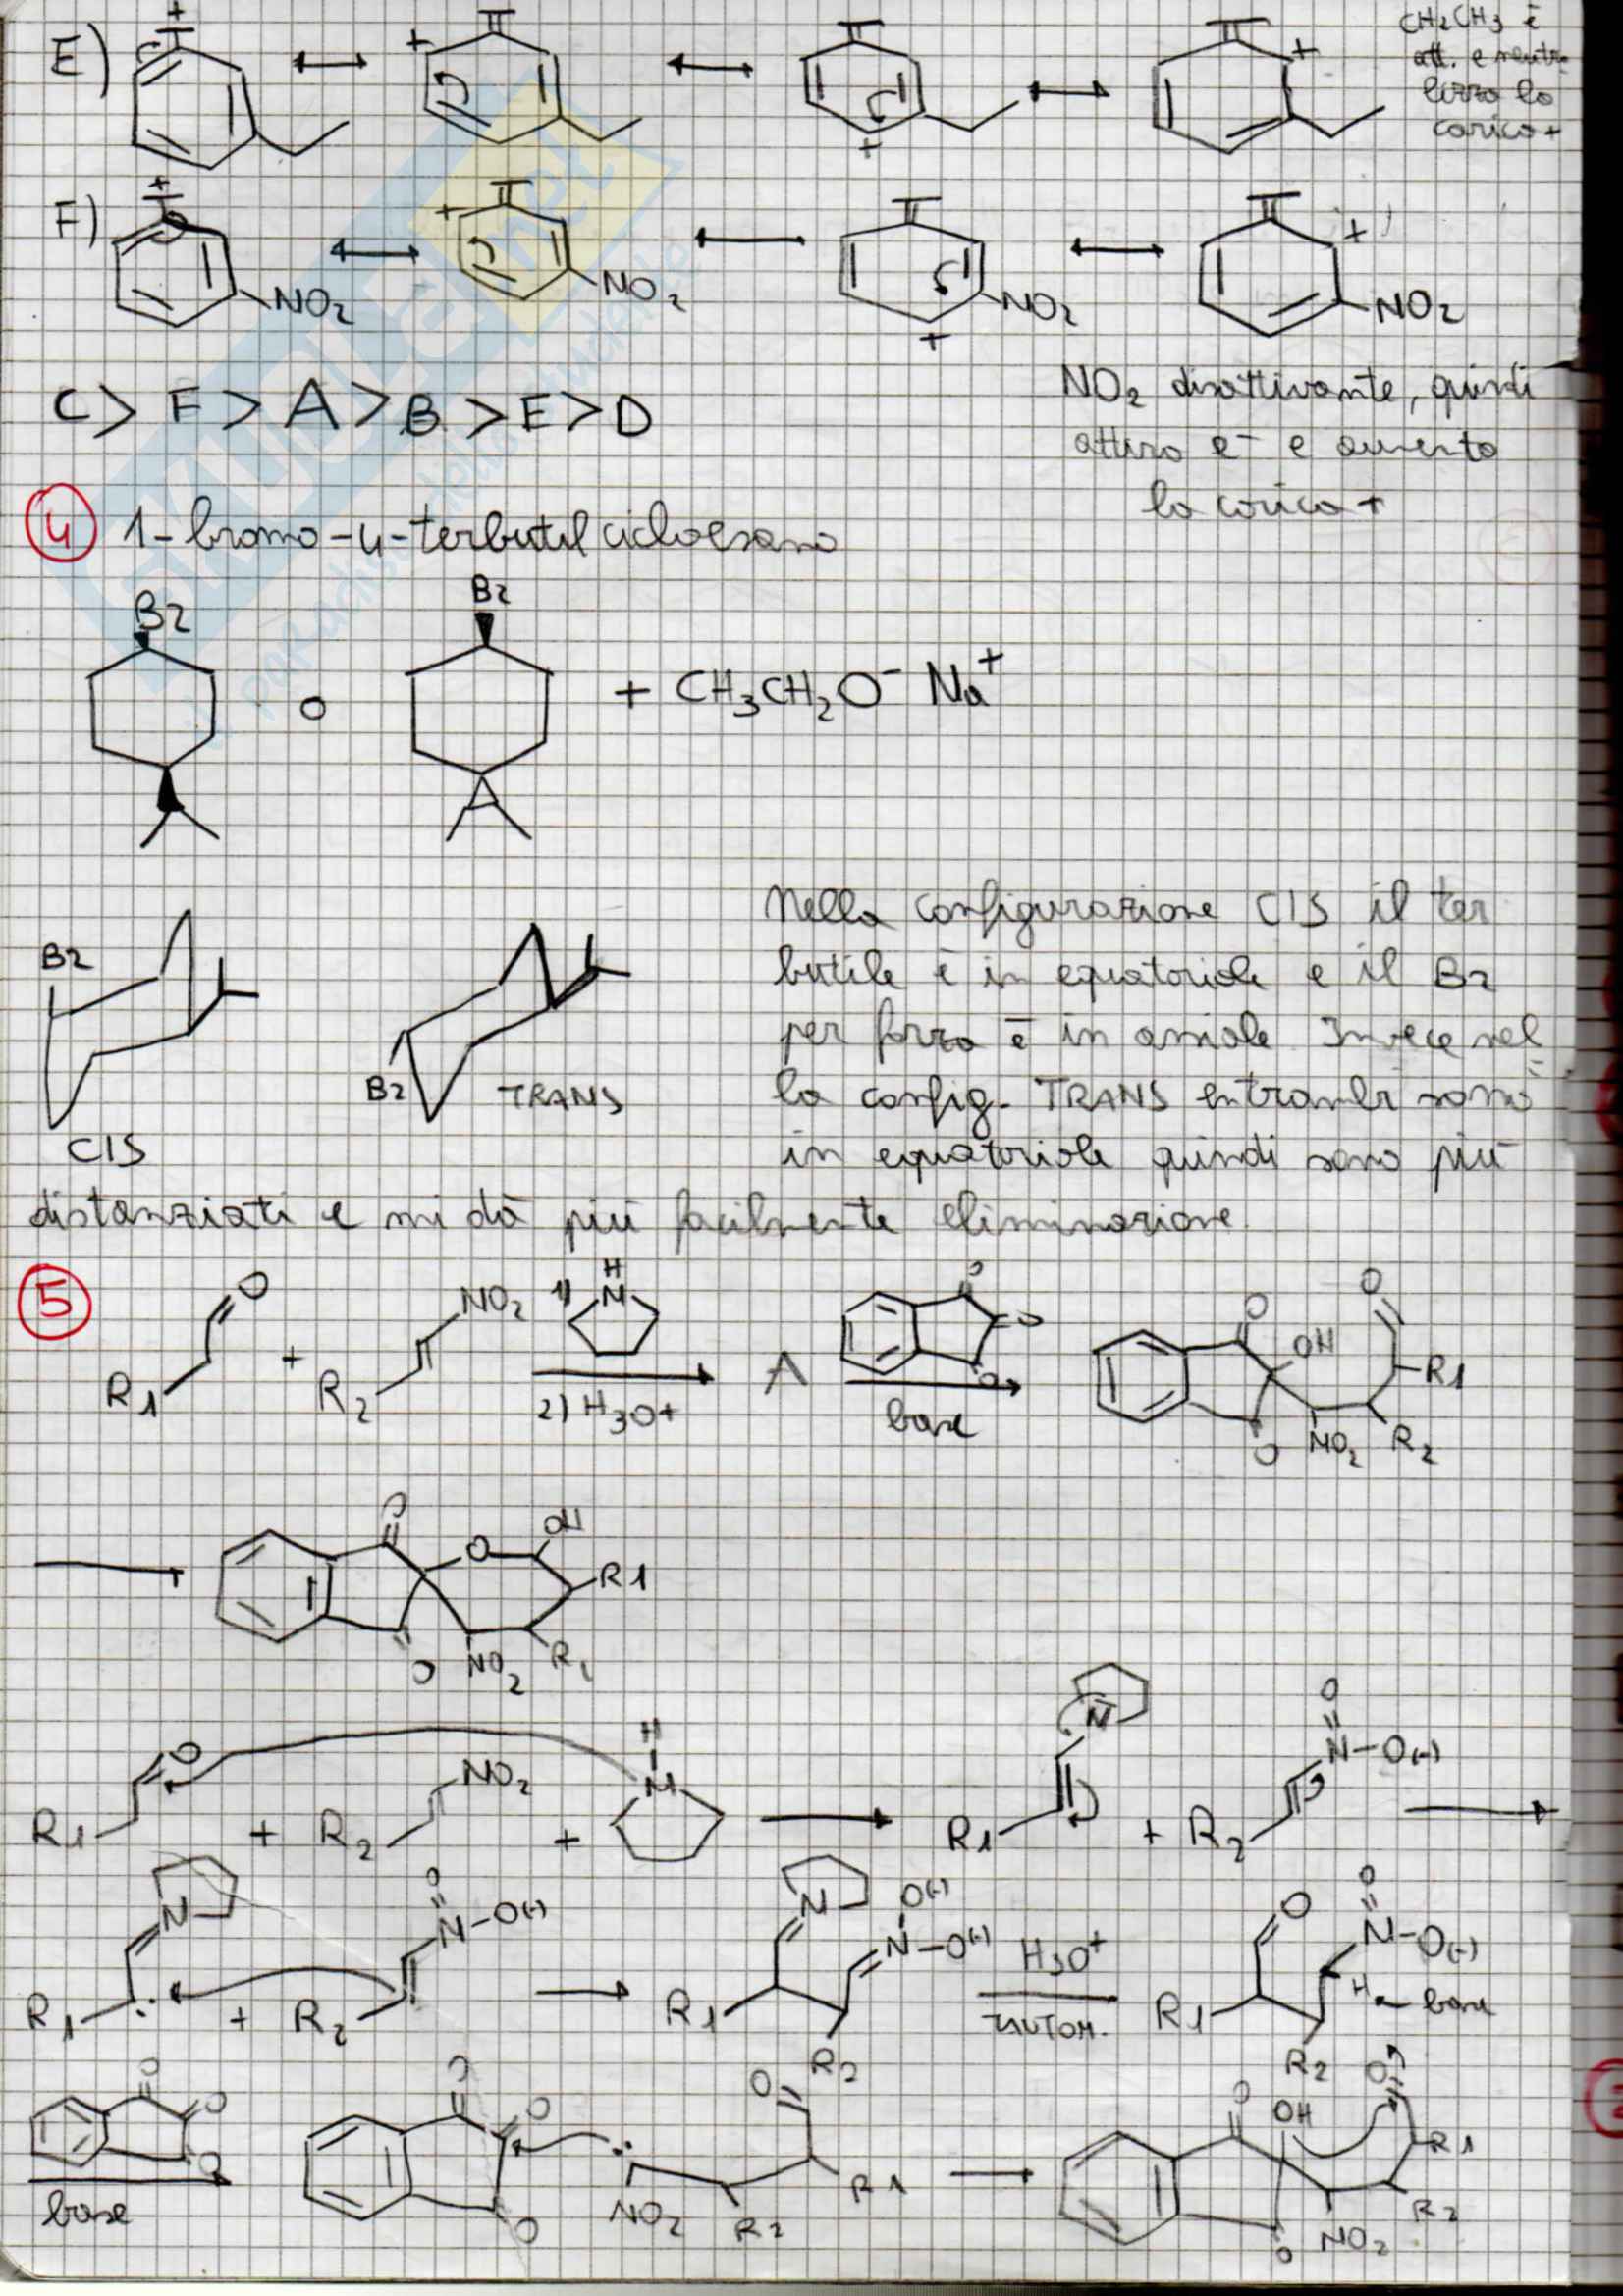 E)
+
+
+
+
CH2CH3 è
att. e neutra
lizza la
carica +
F)
+
NO2
+
NO2
NO2
+
+
NO2
C > F > A > B > E > D
NO2 disattivante, quindi
attira e- e aumenta
la carica +
4 1-bromo-4-terbutilcicloesano
Br
Br
o
+ CH3CH2O- Na+
Nella configurazione CIS il ter
butile è in equatoriale e il Br
per forza è in assiale. Invece nel
la config. TRANS entrambi sono
in equatoriale quindi sono più
distanziati e mi dà più facilmente eliminazione.
Br
CIS
Br
TRANS
5
R1
O
+
R2
NO2
1)
H
N
2) H3O+
A
O
O
O
base
O
OH
O
R1
O
NO2
R2
O
O
OH
R1
O
NO2
R1
O
+
R2
NO2
+
H
N
R1
N
+
R2
O
N-O(-)
R1
N
+
R2
O
N-O(-)
R1
N
O(-)
N-O(-)
R2
H3O+
TAUTOM.
R1
O
O
N-O(-)
H
base
R2
O
O
O
base
O
O
O
O
NO2
R2
R1
O
OH
O
R1
R2
NO2
O